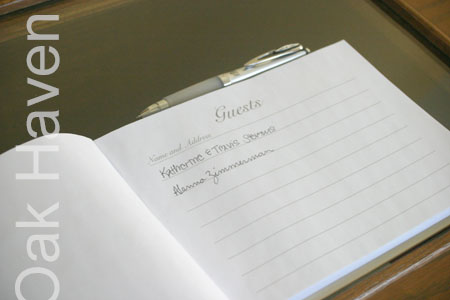 Oak Haven
Guests
Name and Address
Katherine & Travis Stevens
Alanna Zimmerman